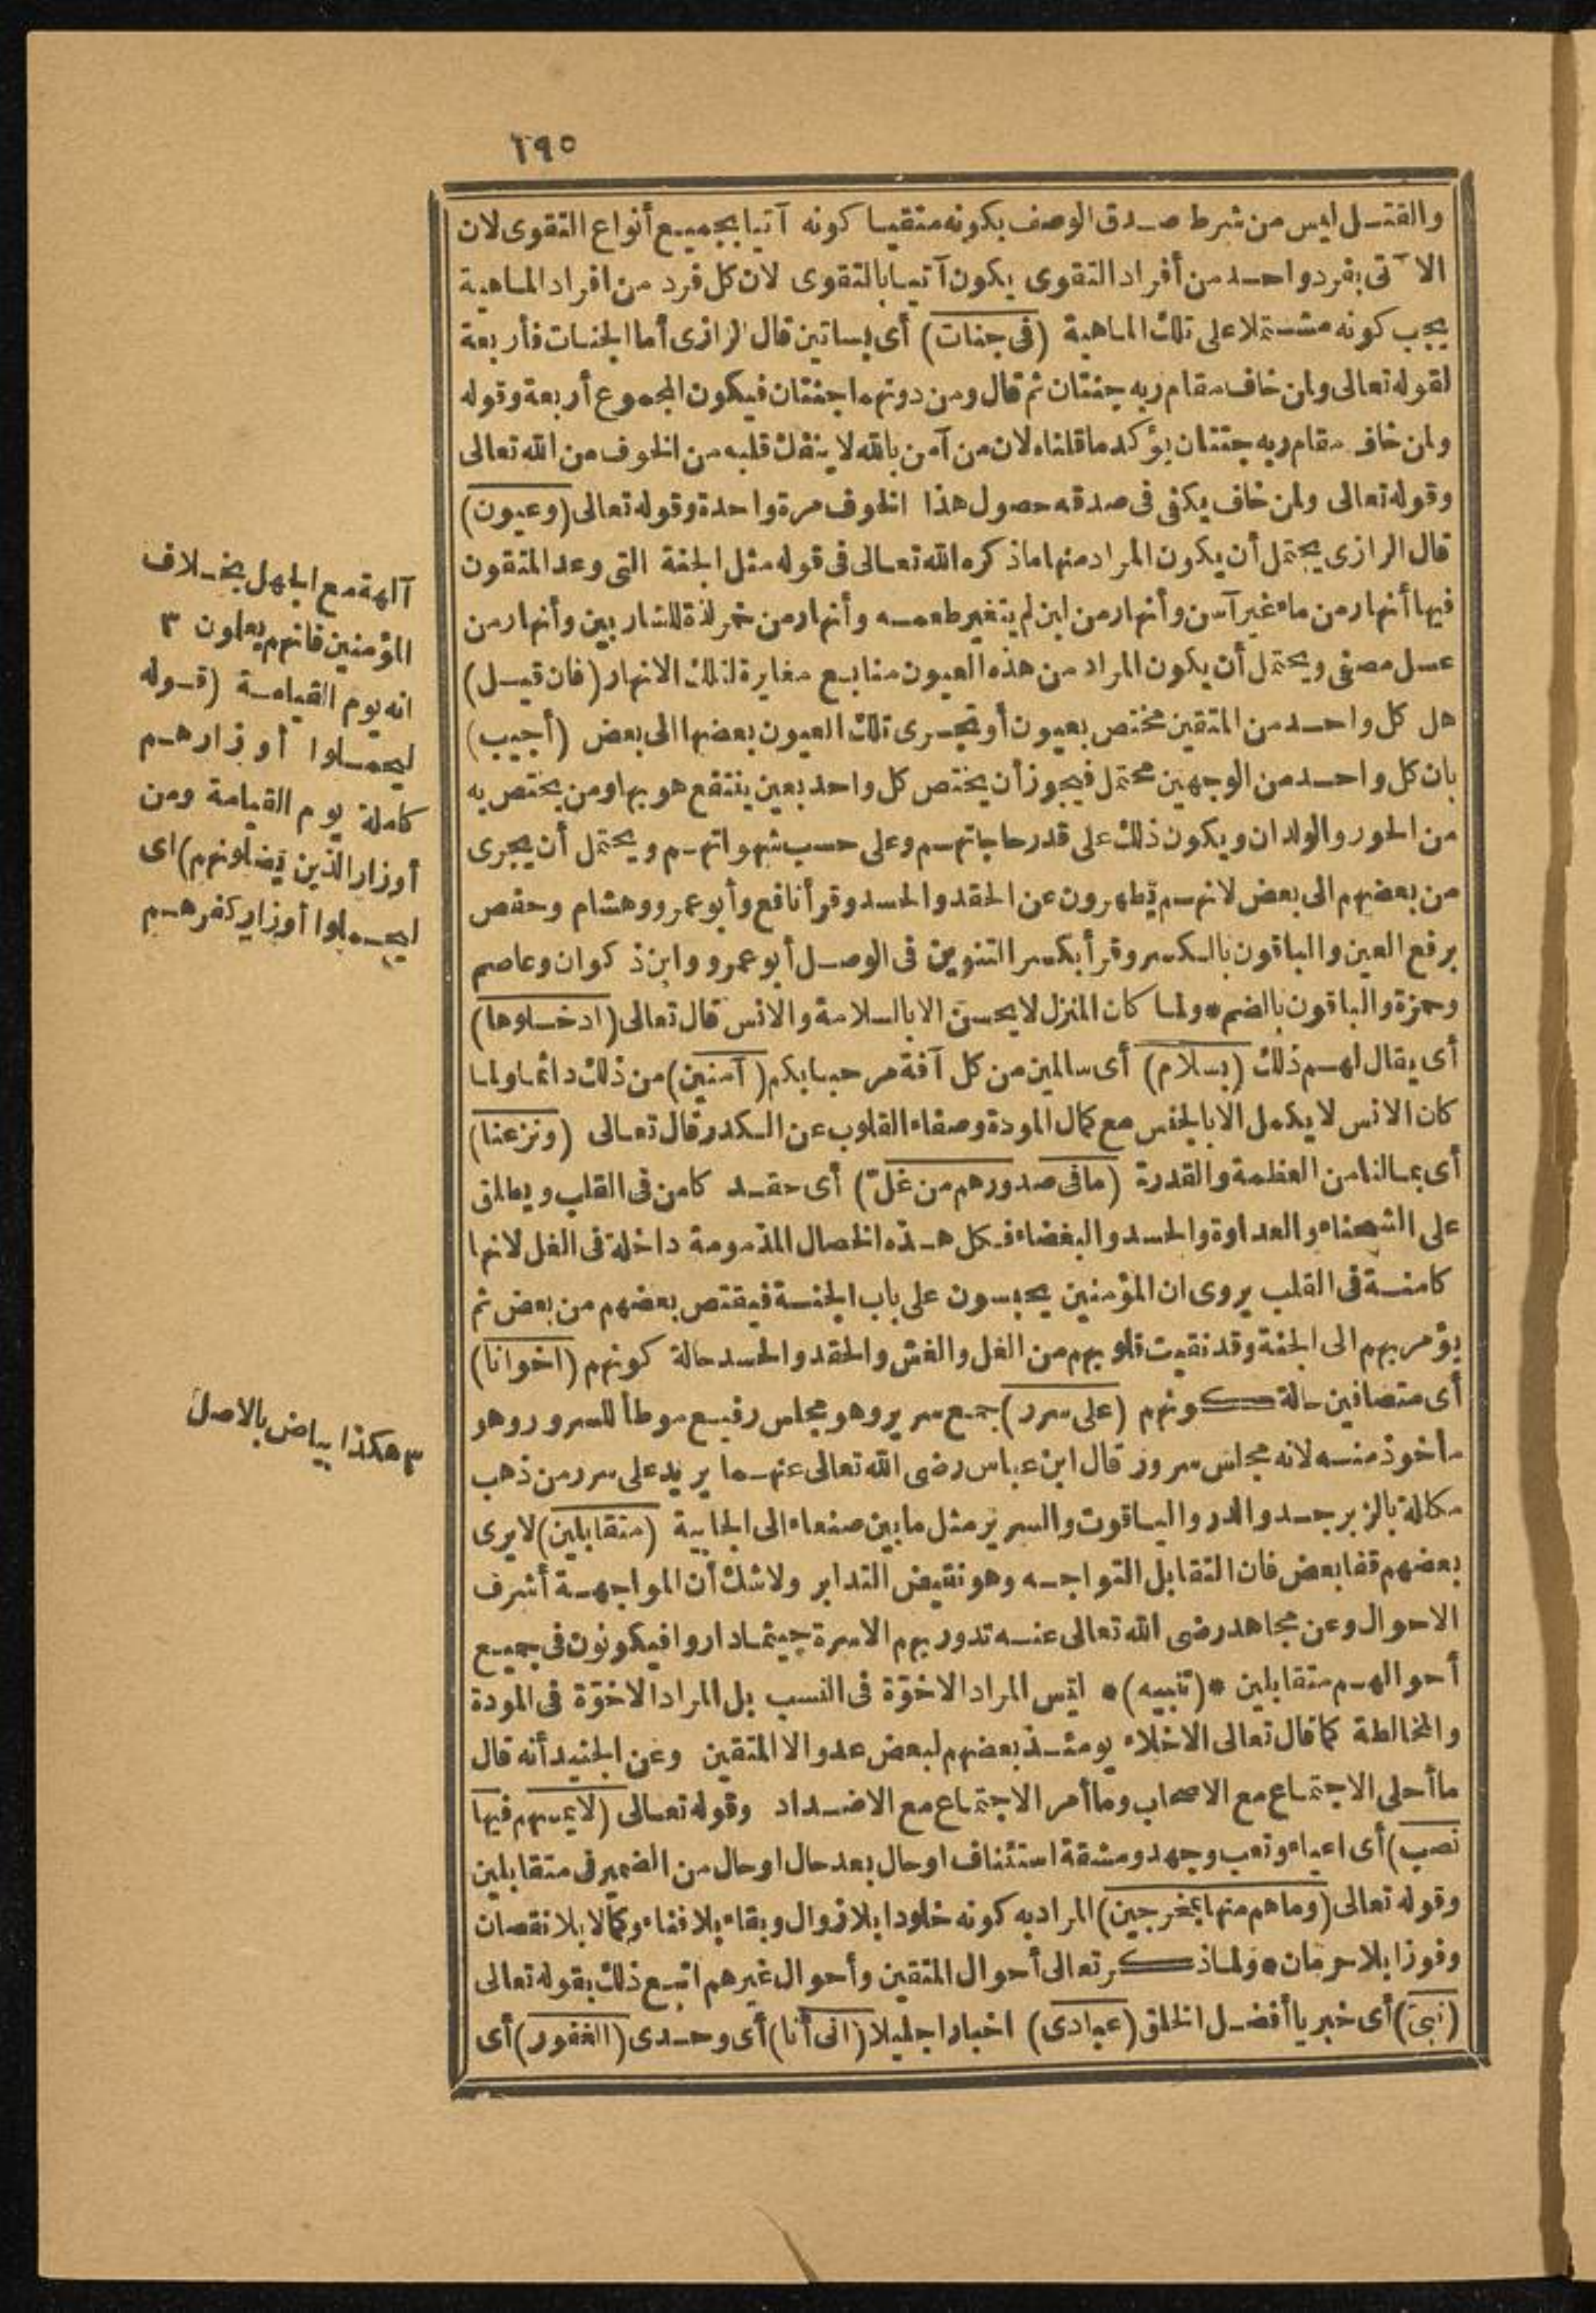 ١٩٥
والقتل ليس من شرط صدق الوصف بكونه متقيا كونه آتيا بجميع أنواع التقوى لان
الآتى بفرد واحد من أفراد التقوى يكون آتيا بالتقوى لان كل فرد من افراد الماهية
يجب كونه مشتملا على تلك الماهية (فى جنات) أى بساتين قال الرازى أما الجنات فأربعة
لقوله تعالى ولمن خاف مقام ربه جنتان ثم قال ومن دونهما جنتان فيكون المجموع أربعة وقوله
ولمن خاف مقام ربه جنتان يؤكد ما قلناه لان من آمن بالله لا ينفك قلبه من الخوف من الله تعالى
وقوله تعالى ولمن خاف يكفى فى صدقه حصول هذا الخوف مرة واحدة وقوله تعالى (وعيون)
قال الرازى يحتمل أن يكون المراد منها ما ذكره الله تعالى فى قوله مثل الجنة التى وعد المتقون
فيها أنهار من ماء غير آسن وأنهار من لبن لم يتغير طعمه وأنهار من خمر لذة للشاربين وأنهار من
عسل مصفى ويحتمل أن يكون المراد من هذه العيون منابع مغايرة لتلك الانهار (فان قيل)
هل كل واحد من المتقين مختص بعيون أو تجرى تلك العيون بعضها الى بعض (أجيب)
بان كل واحد من الوجهين محتمل فيجوز أن يختص كل واحد بعين ينتفع هو بها ومن يختص به
من الحور والولدان ويكون ذلك على قدر حاجاتهم وعلى حسب شهواتهم ويحتمل أن يجرى
من بعضهم الى بعض لانهم يطهرون عن الحقد والحسد وقرأ نافع وأبو عمرو وهشام وحفص
برفع العين والباقون بالكسر وقرأ بكسر التنوين فى الوصل أبو عمرو وابن ذكوان وعاصم
وحمزة والباقون بالضم * ولما كان المنزل لا يحسن الا بالسلامة والانس قال تعالى (ادخلوها)
أى يقال لهم ذلك (بسلام) أى سالمين من كل آفة مرحبا بكم (آمنين) من ذلك دائما ولما
كان الانس لا يكمل الا بالجنس مع كمال المودة وصفاء القلوب عن الكدر قال تعالى (ونزعنا)
أى بما لنا من العظمة والقدرة (ما فى صدورهم من غلّ) أى حقد كامن فى القلب ويطلق
على الشحناء والعداوة والحسد والبغضاء فكل هذه الخصال المذمومة داخلة فى الغل لانها
كامنة فى القلب يروى ان المؤمنين يحبسون على باب الجنة فيقتص بعضهم من بعض ثم
يؤمر بهم الى الجنة وقد نقيت قلوبهم من الغل والغش والحقد والحسد حالة كونهم (اخوانا)
أى متصافين حالة كونهم (على سرر) جمع سرير وهو مجلس رفيع موطأ للسرور وهو
مأخوذ منه لانه مجلس سرور قال ابن عباس رضى الله تعالى عنهما يريد على سرر من ذهب
مكللة بالزبرجد والدر والياقوت والسرير مثل ما بين صنعاء الى الجابية (متقابلين) لا يرى
بعضهم قفا بعض فان التقابل التواجه وهو نقيض التدابر ولا شك أن المواجهة أشرف
الاحوال وعن مجاهد رضى الله تعالى عنه تدور بهم الاسرة حيثما داروا فيكونون فى جميع
أحوالهم متقابلين * (تنبيه) * ليس المراد الاخوّة فى النسب بل المراد الاخوّة فى المودة
والمخالطة كما قال تعالى الاخلاء يومئذ بعضهم لبعض عدو الا المتقين وعن الجنيد أنه قال
ما أحلى الاجتماع مع الاصحاب وما أمر الاجتماع مع الاضداد وقوله تعالى (لا يمسهم فيها
نصب) أى اعياء وتعب وجهد ومشقة استئناف او حال بعد حال او حال من الضمير فى متقابلين
وقوله تعالى (وما هم منها بمخرجين) المراد به كونه خلودا بلا زوال وبقاء بلا فناء وكمالا بلا نقصان
وفوزا بلا حرمان * ولما ذكر تعالى أحوال المتقين وأحوال غيرهم اتبع ذلك بقوله تعالى
(نبئ) أى خبر يا أفضل الخلق (عبادى) اخبارا جليلا (انى أنا) أى وحدى (الغفور) أى
آلهة مع الجهل بخلاف
المؤمنين فانهم يعلون ٣
انه يوم القيامة (قوله
ليحملوا أوزارهم
كاملة يوم القيامة ومن
أوزار الذين يضلونهم) اى
ليحملوا أوزار كفرهم
٣ هكذا بياض بالاصل